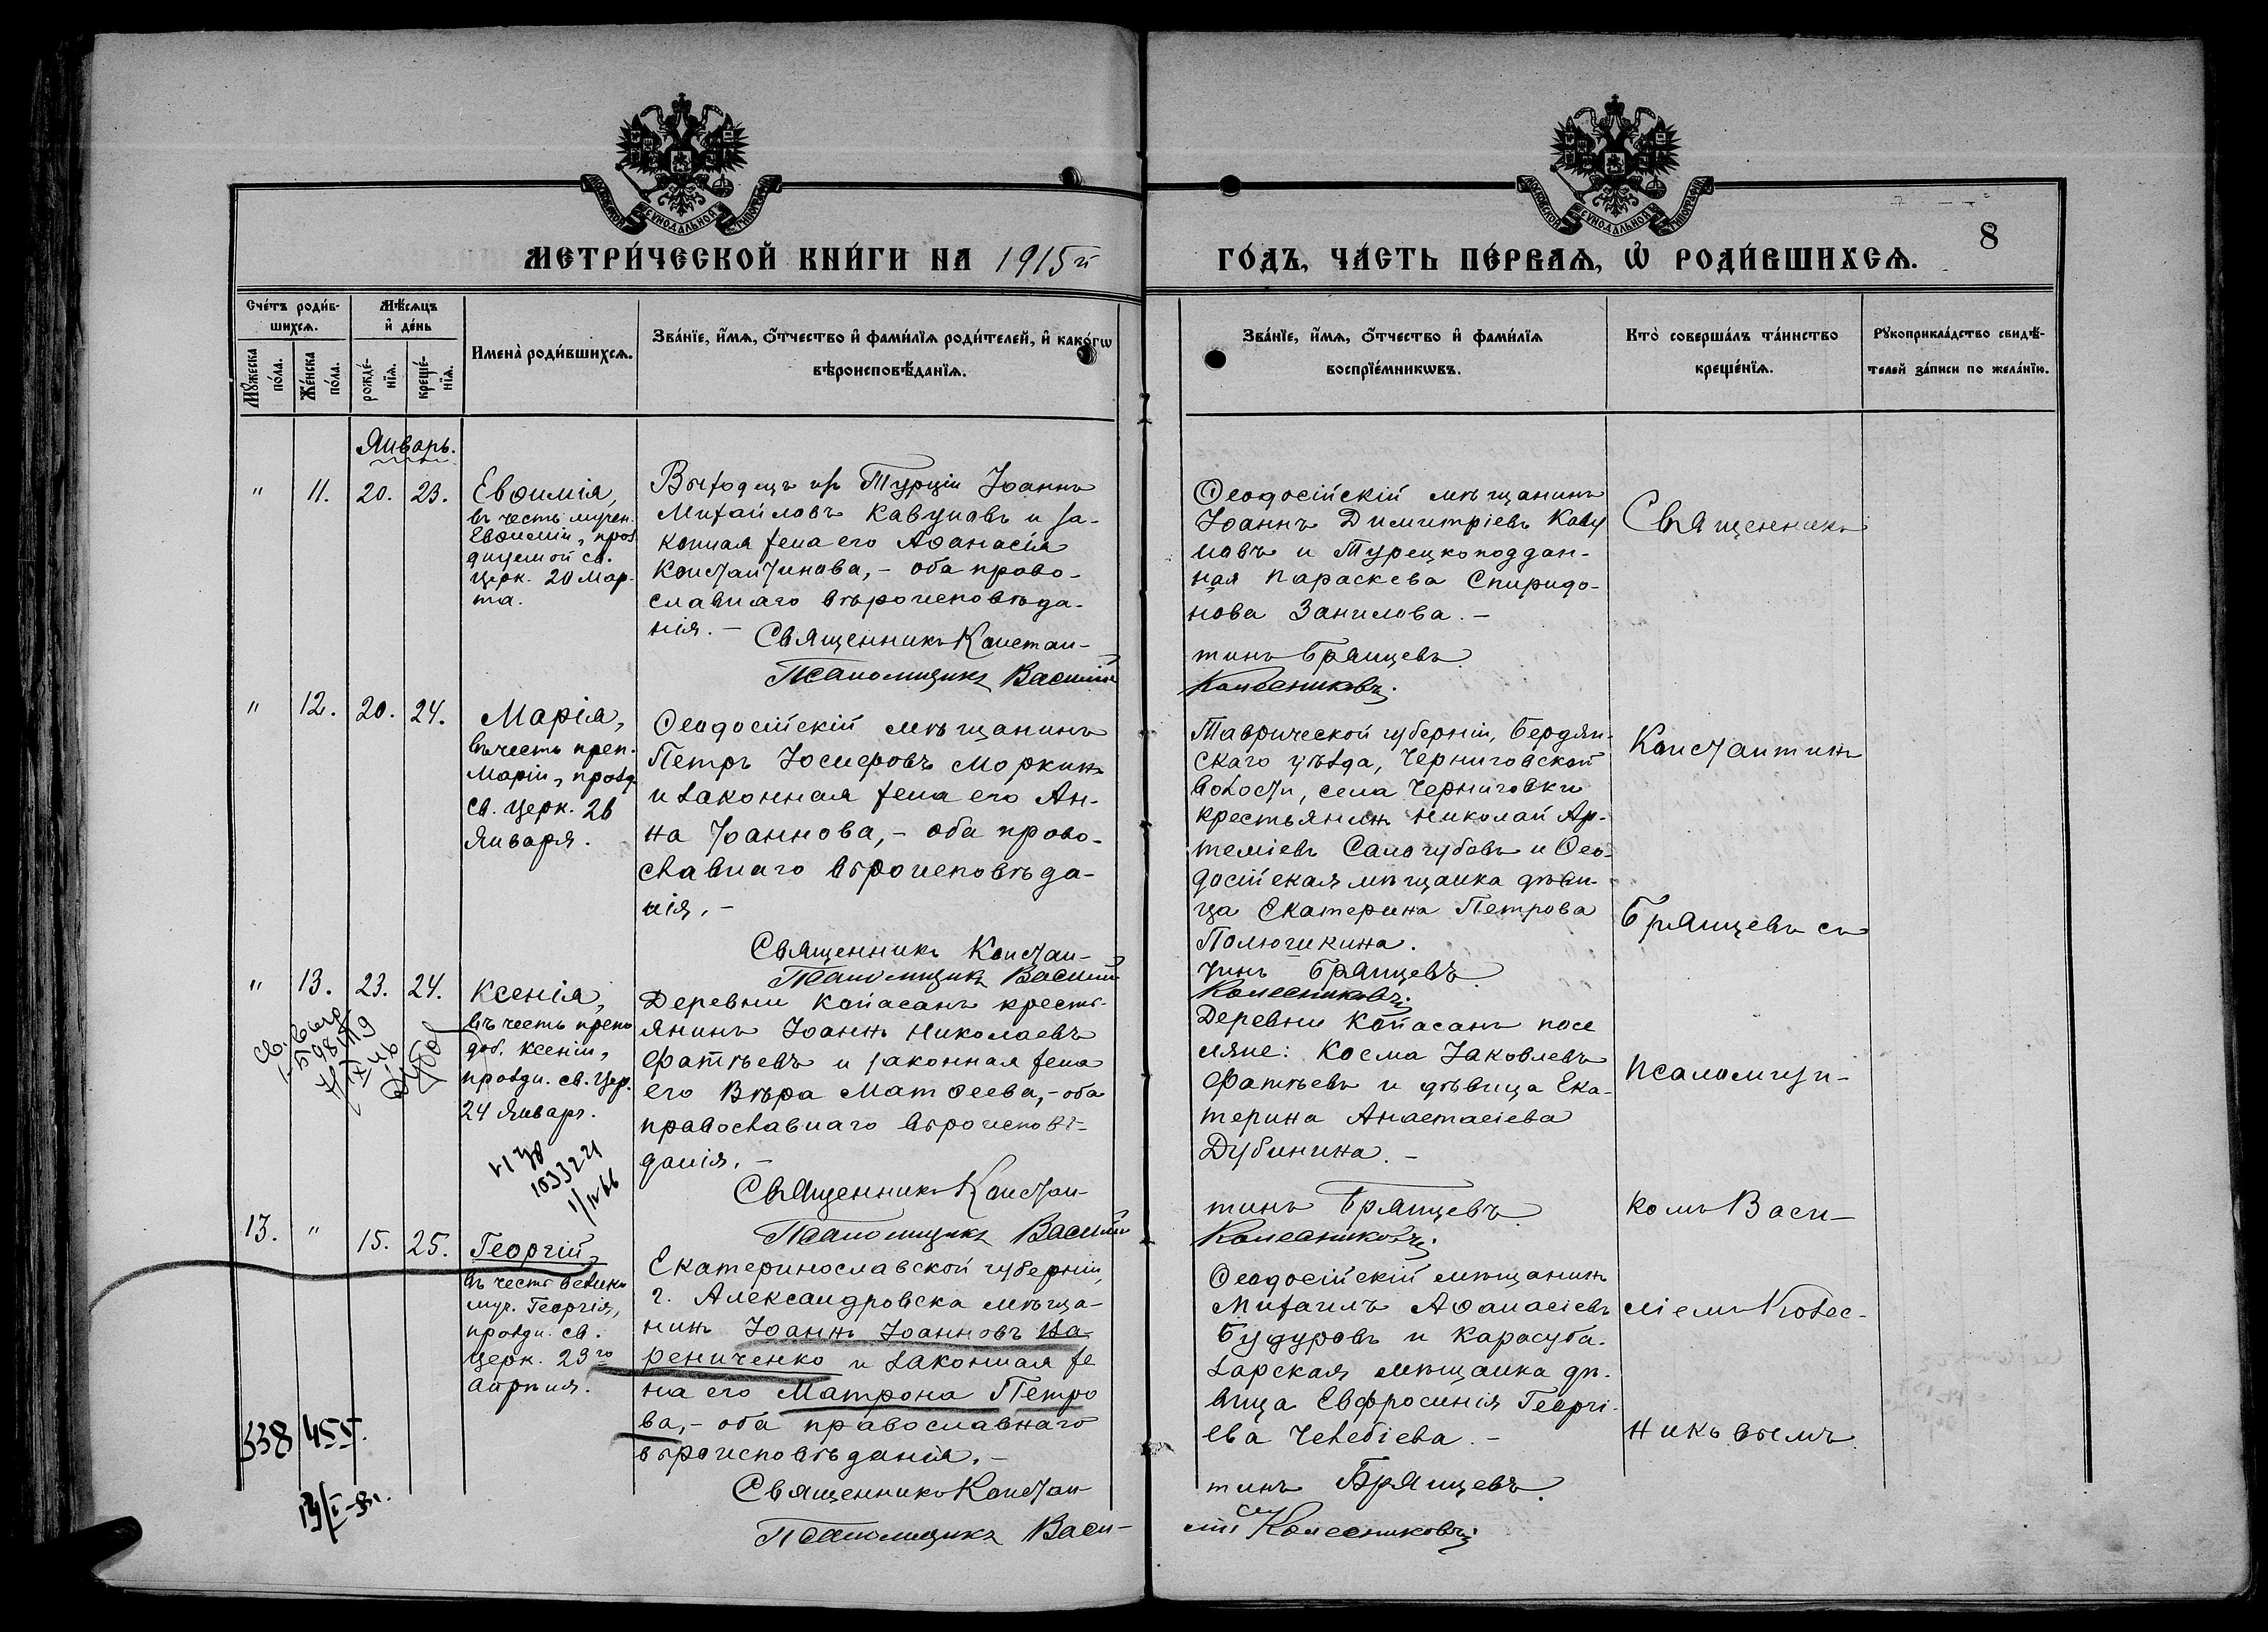 МЕТРИ́ЧЕСКОЙ КНИ́ГИ НА 1915й
ГО́ДЪ, ЧА́СТЬ ПЕ́РВАѦ, Ѡ РОДИ́ВШИХСѦ.
8
Сче́тъ роди́в-
шихсѧ.
Мѣ́сѧцъ
и де́нь
Мꙋ́жеска
по́ла.
Же́нска
по́ла.
рожде́-
нїѧ.
креще́-
нїѧ.
Имена̀ роди́вшихсѧ.
Зва́нїе, и́мѧ, ѻ́тчество и фами́лїѧ роди́телей, и како́гѡ
вѣроисповѣ́данїѧ.
Зва́нїе, и́мѧ, ѻ́тчество и фами́лїѧ
воспрїе́мникѡвъ.
Кто̀ соверша́лъ та́инство
креще́нїѧ.
Рꙋкоприкла́дство свидѣ́-
телей за́писи по жела́нїю.
Январь.
" 11. 20. 23.
Евѳимія,
въ честь мучен.
Евѳиміи, празд
днуемой св.
Церк. 20 Мар-
та.
Выходецъ изъ Турціи Іоаннъ
Михайловъ Кавуновъ и за-
конная жена его Аѳанасія
Константинова, - оба право-
славнаго вѣроисповѣда-
нія. -
Священникъ Констан-
Псаломщикъ Василій
Ѳеодосійскій мѣщанинъ
Іоаннъ Димитріевъ Каву
новъ и Турецкоподдан-
ная Параскева Спиридо-
нова Занилова. -
тинъ Брянцевъ.
Колесниковъ.
Священникъ
" 12. 20. 24.
Марія,
въ честь преп.
Маріи, празд
св. Церк. 26
Января.
Ѳеодосійскій мѣщанинъ
Петръ Іосифовъ Моркинъ
и законная жена его Ан-
на Іоаннова, - оба право-
славнаго вѣроисповѣда-
нія. -
Священникъ Констан-
Псаломщикъ Василій
Таврической губерніи, Бердян-
скаго уѣзда, Черниговской
волости, села Черниговки
крестьянинъ Николай Ар-
теміевъ Салогубовъ и Ѳео-
досійская мѣщанка дѣви-
ца Екатерина Петрова
Полюшкина.
тинъ Брянцевъ.
Колесниковъ.
Константинъ
Брянцевъ съ
" 13. 23. 24.
Ксенія,
въ честь препо
доб. Ксеніи,
праздн. св. Цер.
24 Январ.
Деревни Копасанъ кресть-
янинъ Іоаннъ Николаевъ
Фатѣевъ и законная жена
его Вѣра Матѳеева, - оба
православнаго вѣроисповѣ-
данія. -
Священникъ Констан-
Псаломщикъ Василій
Деревни Копасанъ посе
ляне: Косма Іаковлевъ
Фатѣевъ и дѣвица Ека-
терина Анастасіева
Дубинина. -
тинъ Брянцевъ.
Колесниковъ.
Псаломщи-
комъ Васи-
1033221
13. " 15. 25.
Георгій,
въ честь велико
муч. Георгія,
праздн. св.
Церк. 23го
Апрѣля.
Екатеринославской губерніи,
г. Александровска мѣща-
нинъ Іоаннъ Іоанновъ
рениченко и законная же
на его Матрона Петро
ва, - оба православнаго
вѣроисповѣданія. -
Священникъ Констан
Псаломщикъ Васи-
Ѳеодосійскій мѣщанинъ
Михаилъ Аѳанасіевъ
Будуровъ и Карасуба-
зарская мѣщанка дѣ-
вица Евфросинія Георгі-
ева Челебіева. -
тинъ Брянцевъ.
лій Колесниковъ.
ліемъ Колес-
никовымъ.
338 455.